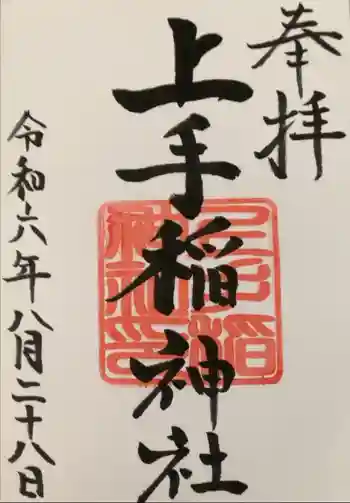 奉拝
上手稲神社
上手稲神社印
令和六年八月二十八日